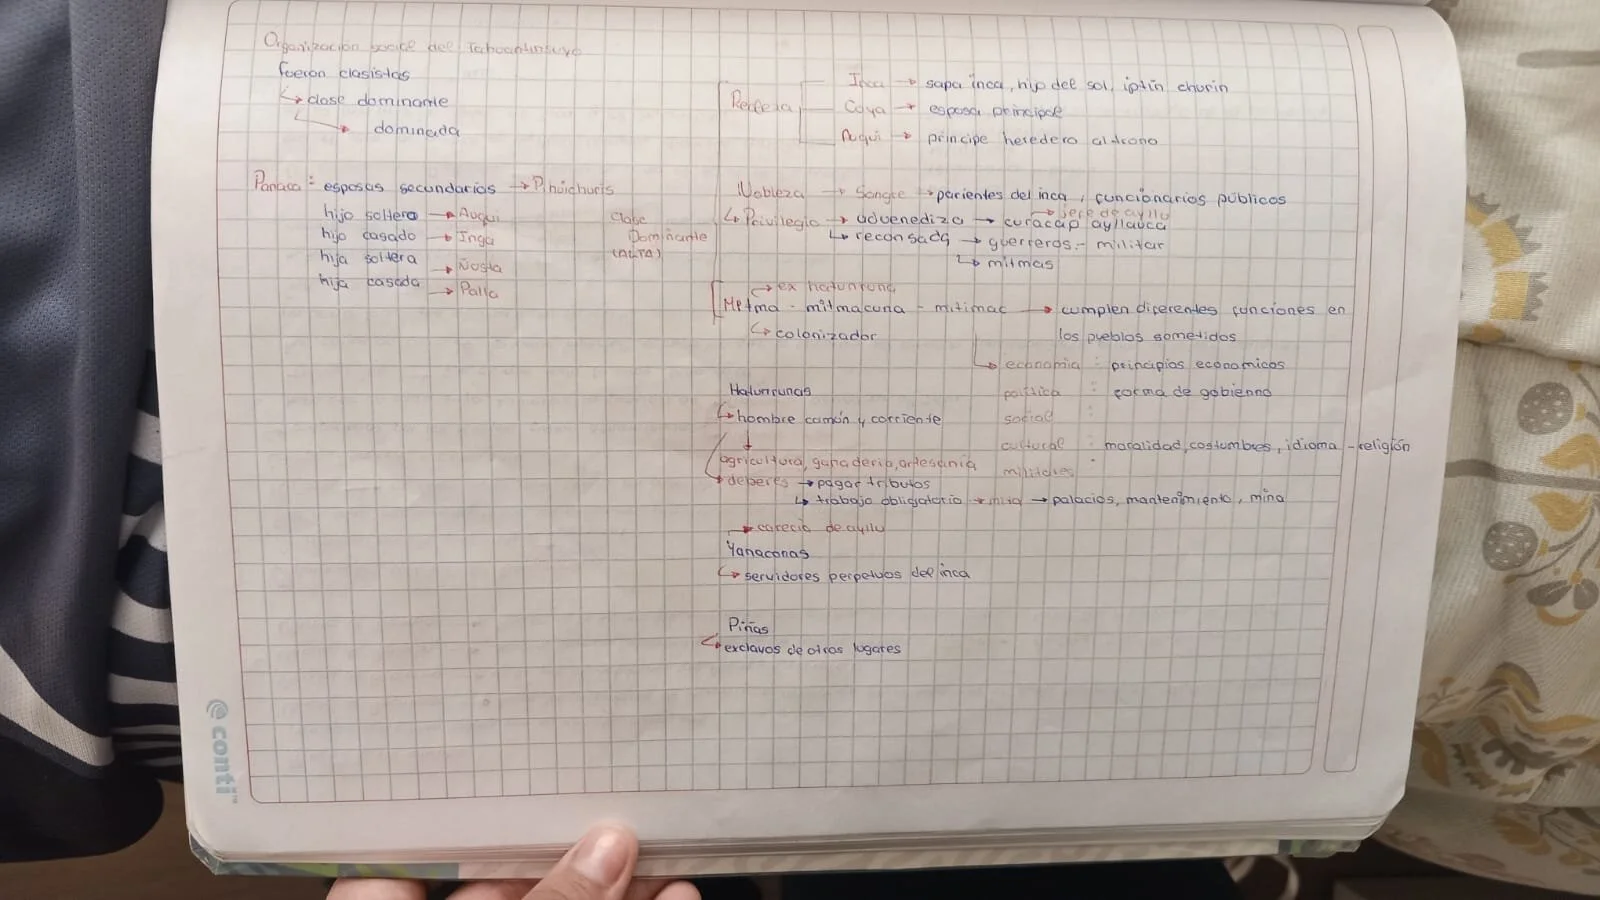 Organización social del Tahoantinsuyo
fueron clasistas
↳ clase dominante
↳ dominada
Panaca: esposas secundarios → Pihuichuris
hijo soltero → Auqui
hijo casado → Inga
hija soltera → Ñusta
hija casada → Palla
Clase
Dominante
(ALTA)
Realeza
Inca → sapa inca, hijo del sol, iptin churin
Coya → esposa principal
Auqui → principe heredero al trono
Nobleza → Sangre → parientes del inca, funcionarios públicos
↳ Privilegio → advenediza → curacap ayllauca
→ jefe de ayllu
↳ reconsada → guerreros - militar
↳ mitmas
→ ex hatunruna
Mitma - mitmacuna - mitimac → cumplen diferentes funciones en
los pueblos sometidos
↳ colonizador
↳ economia : principios economicos
politica : forma de gobienno
social :
cultural : moralidad, costumbres, idioma - religión
militares :
Hatunrunas
↳ hombre común y corriente
agricultura, ganaderia, artesania
deberes → pagar tributos
↳ trabajo obligatorio → mita → palacios, mantenimiento, mina
→ carecia de ayllu
Yanaconas
↳ servidores perpetuos del inca
Piñas
↳ exclavos de otros lugares
conti